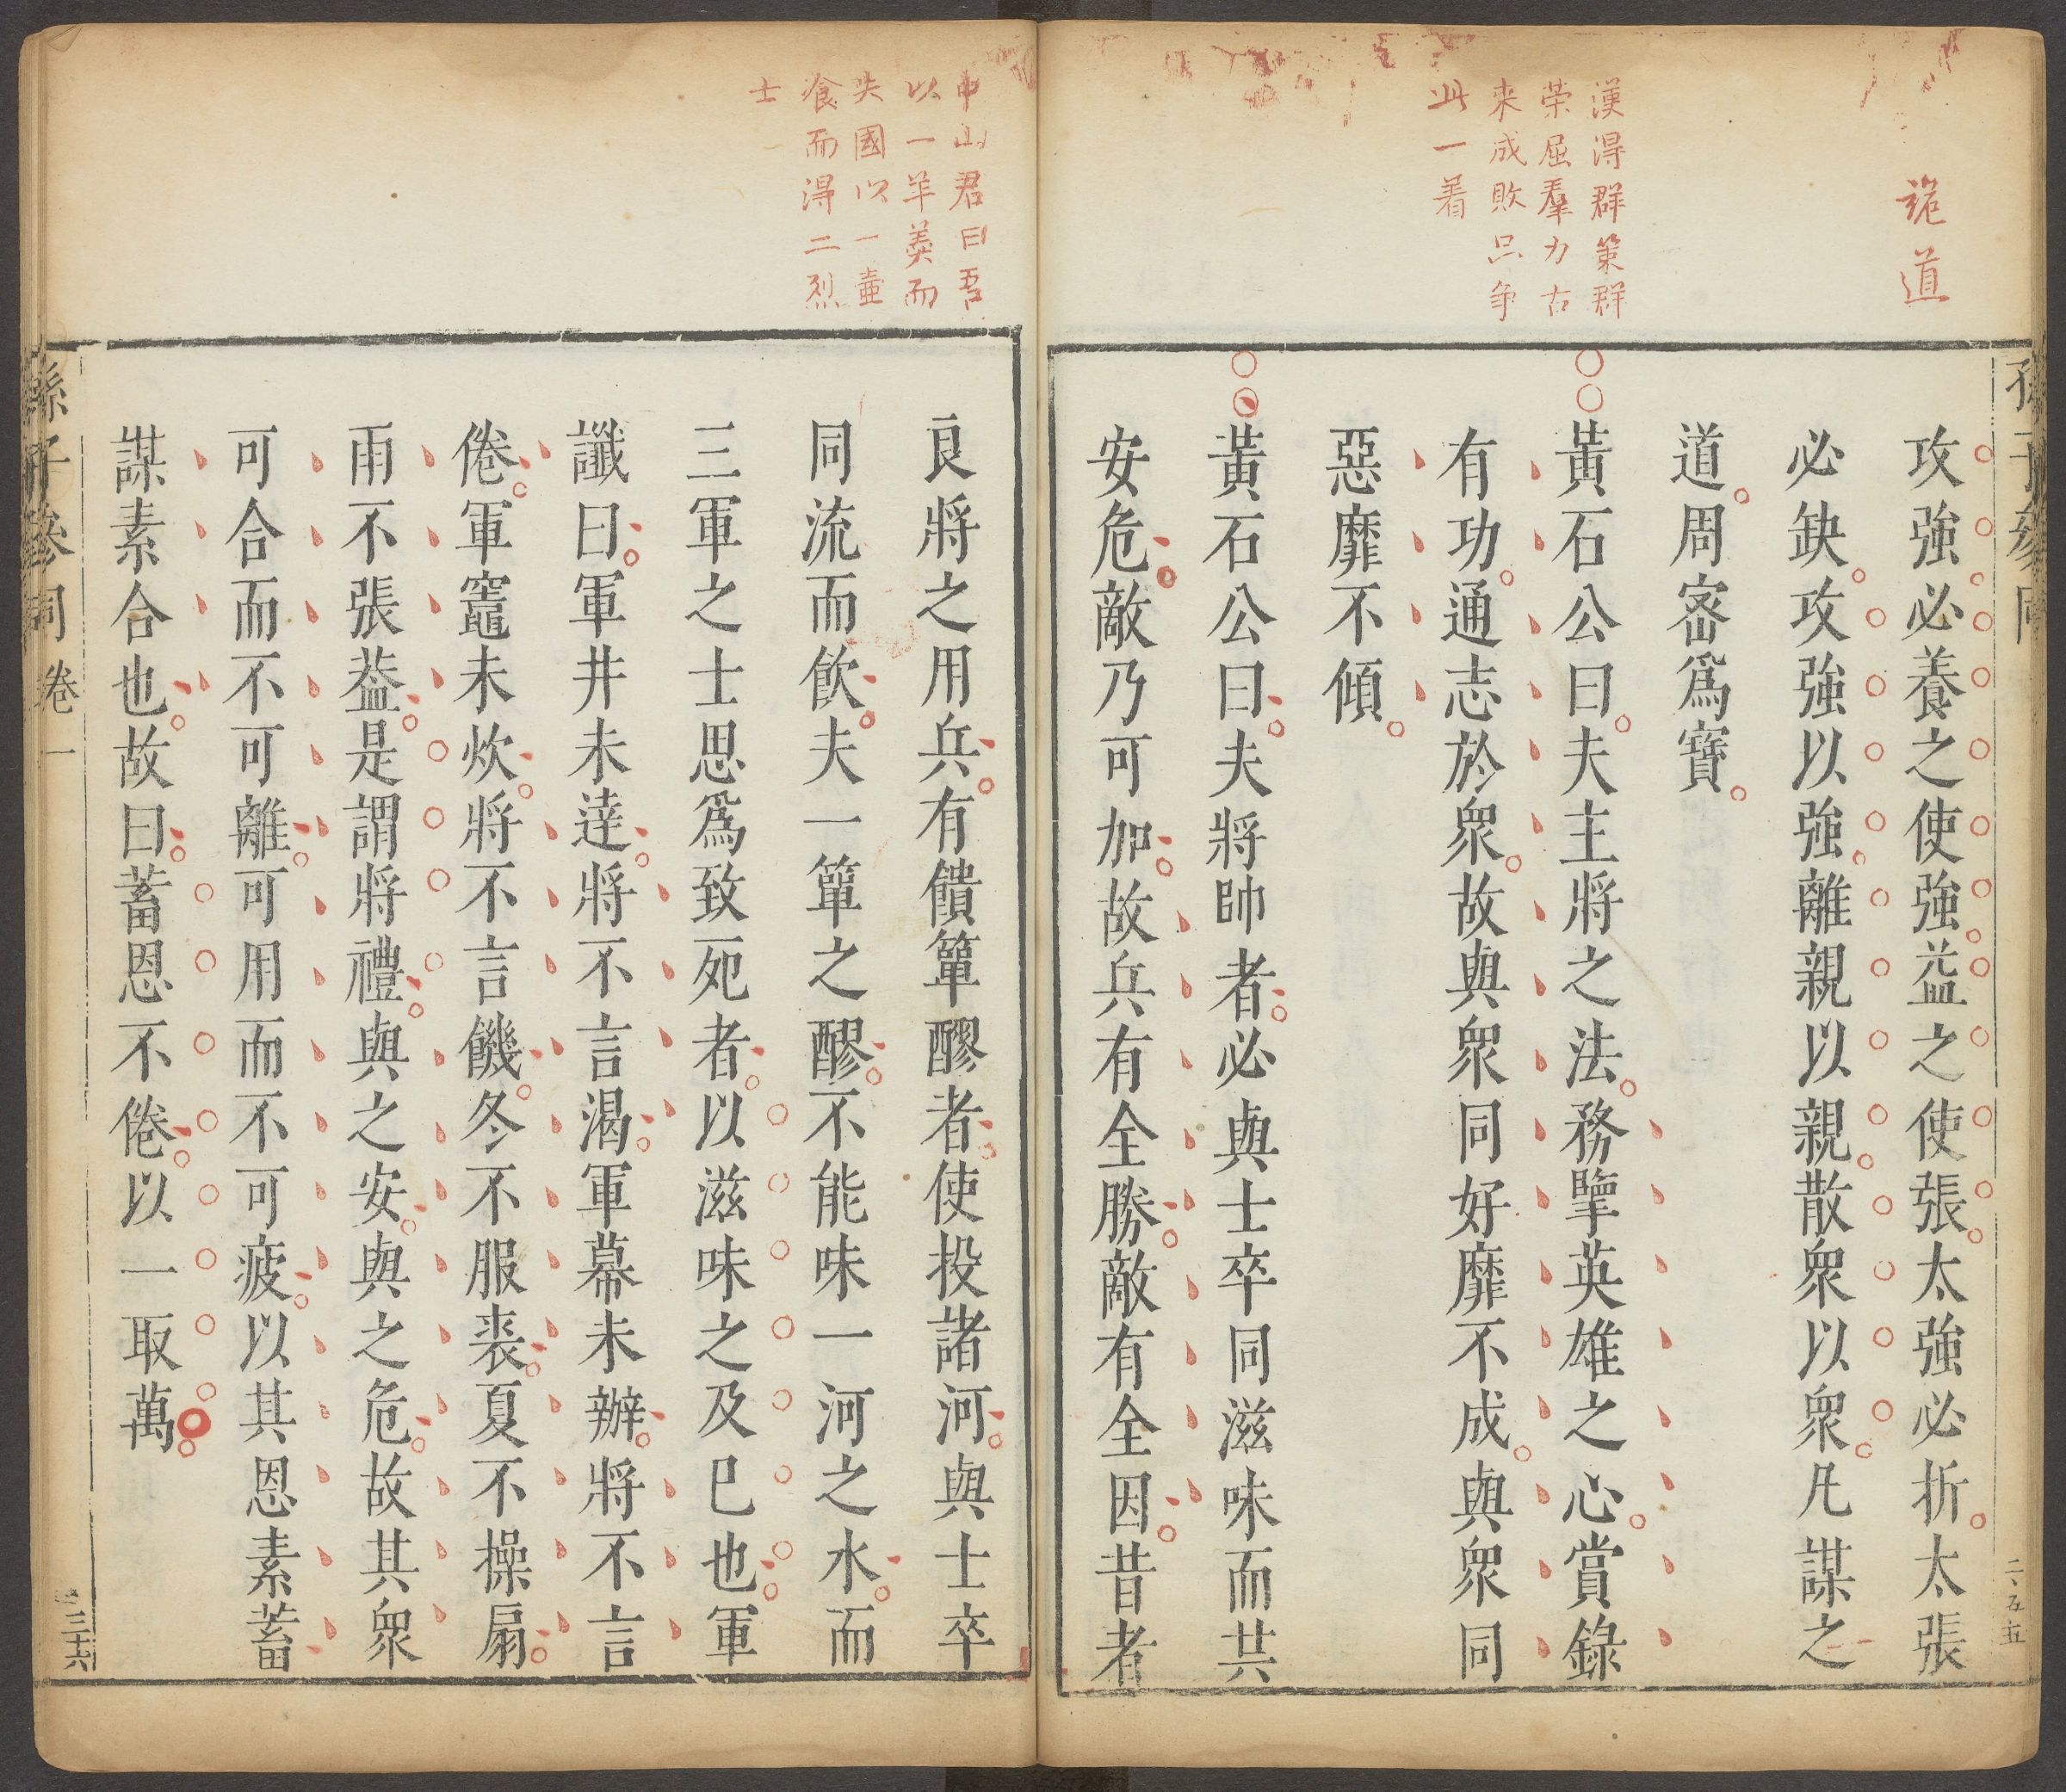 孫子參同
詭道
攻強必養之使強益之使張太強必折太張
必缺攻強以強離親以親散衆以衆凡謀之
道周宻爲寶
漢得群策群
荣屈羣力古
来成敗只争
此一着
黃石公曰夫主將之法務擥英雄之心賞錄
有功通志於衆故與衆同好靡不成與衆同
惡靡不傾
黃石公曰夫將帥者必與士卒同滋味而共
安危敵乃可加故兵有全勝敵有全因昔者
中山君曰吾
以一羊羮而
失國以一壷
飡而得二烈
士
良將之用兵有饋簞醪者使投諸河與士卒
同流而飲夫一簞之醪不能味一河之水而
三軍之士思爲致死者以滋味之及已也軍
讖曰軍井未達將不言渴軍幕未辦將不言
倦軍竈未炊將不言饑冬不服裘夏不操扇
雨不張葢是謂將禮與之安與之危故其衆
可合而不可離可用而不可疲以其恩素蓄
謀素合也故曰蓄恩不倦以一取萬
孫子參同卷一
三十六